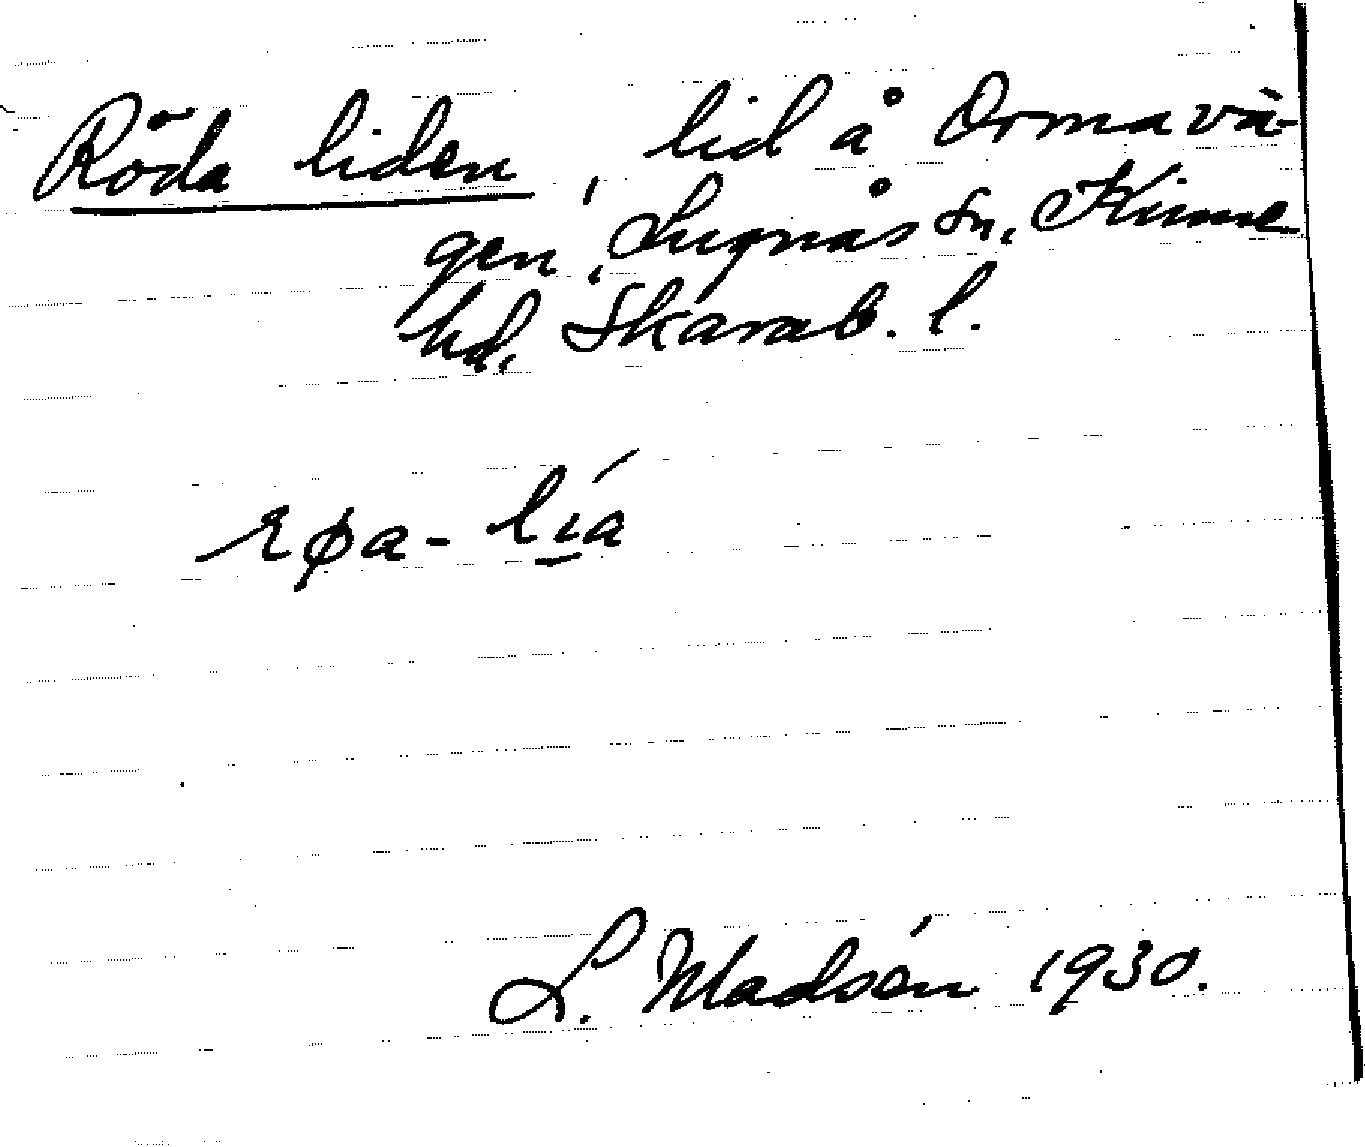 Röda liden, lid å Ormavä-
gen, Lugnås sn, Kinne
hd, Skarab. l.
røa-lía
L. Madsén 1930.